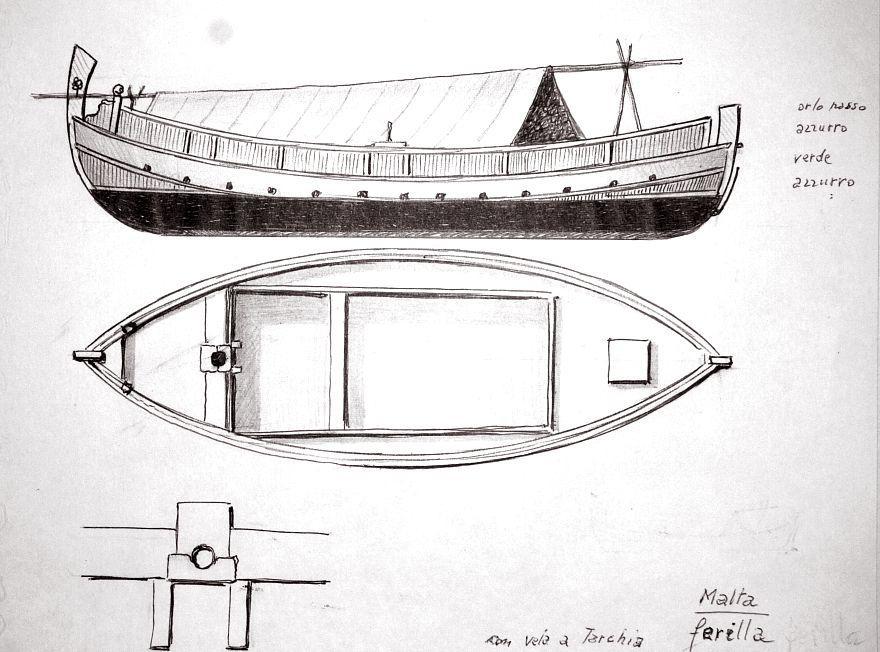 orlo rosso
azzurro
verde
azzurro
:
con vela a Tarchia
Malta
ferilla